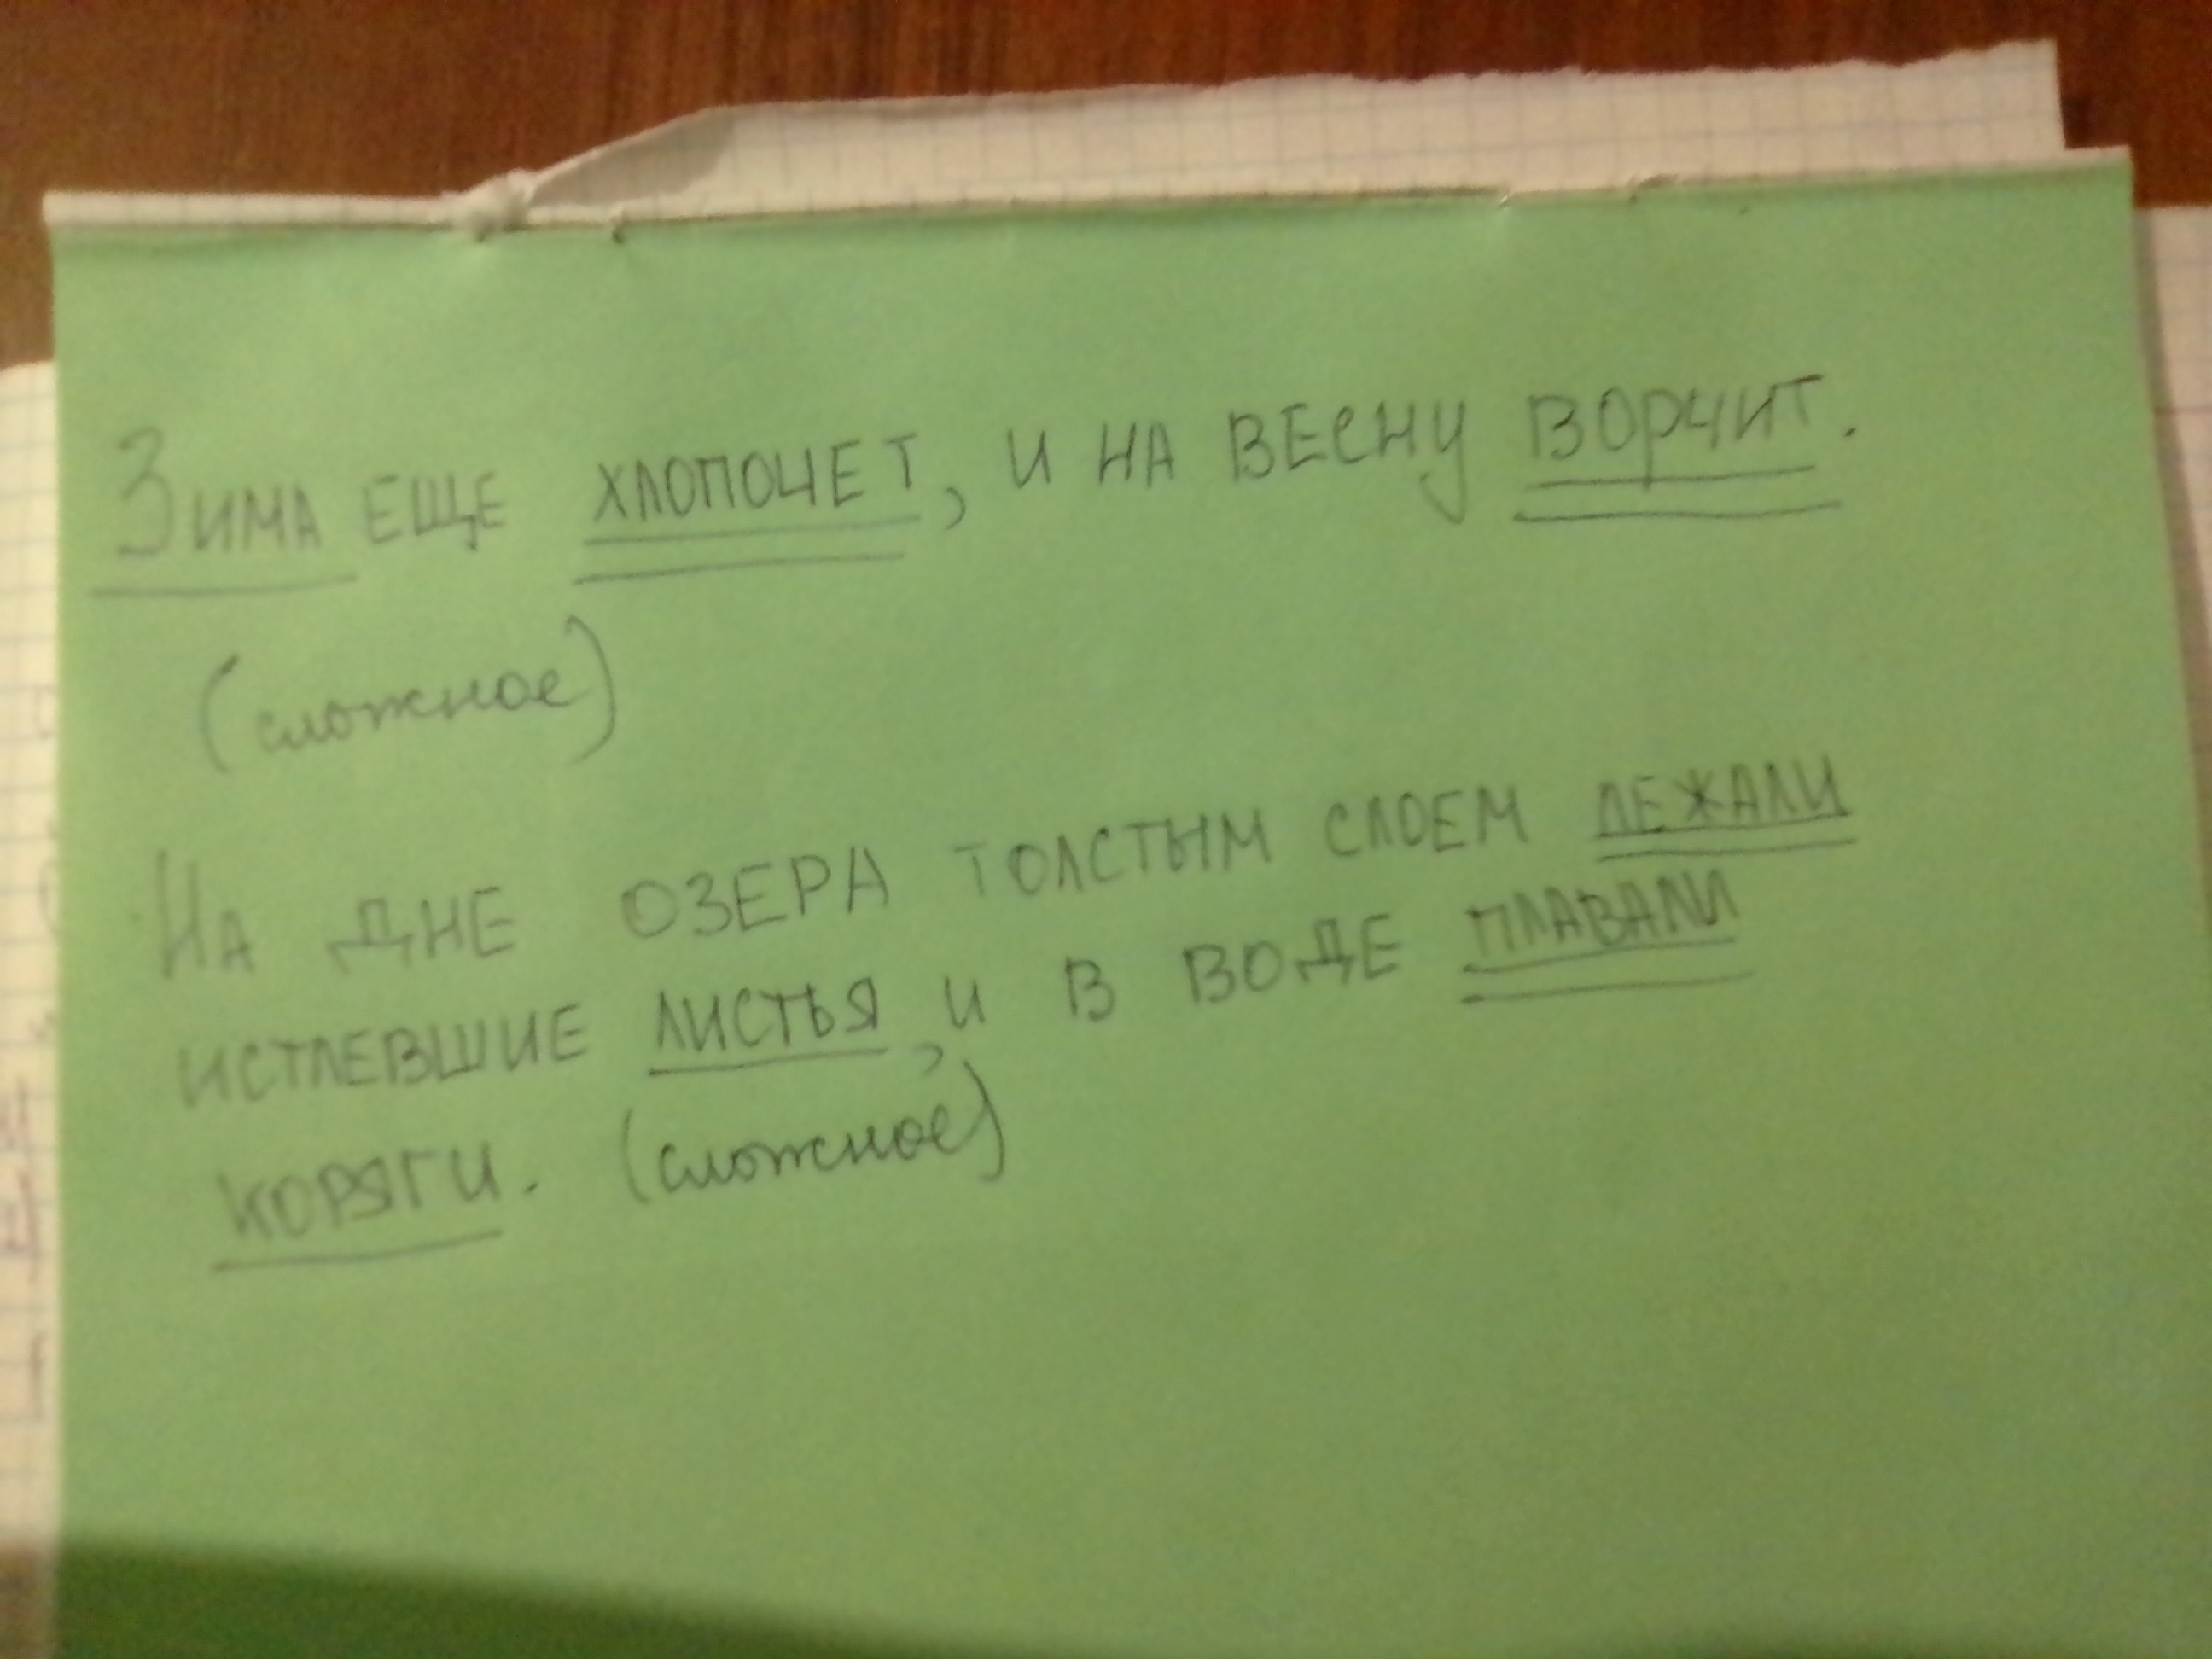 Зима еще хлопочет, и на весну ворчит.
(сложное)
На дне озера толстым слоем лежали
истлевшие листья, и в воде плавали
коряги. (сложное)